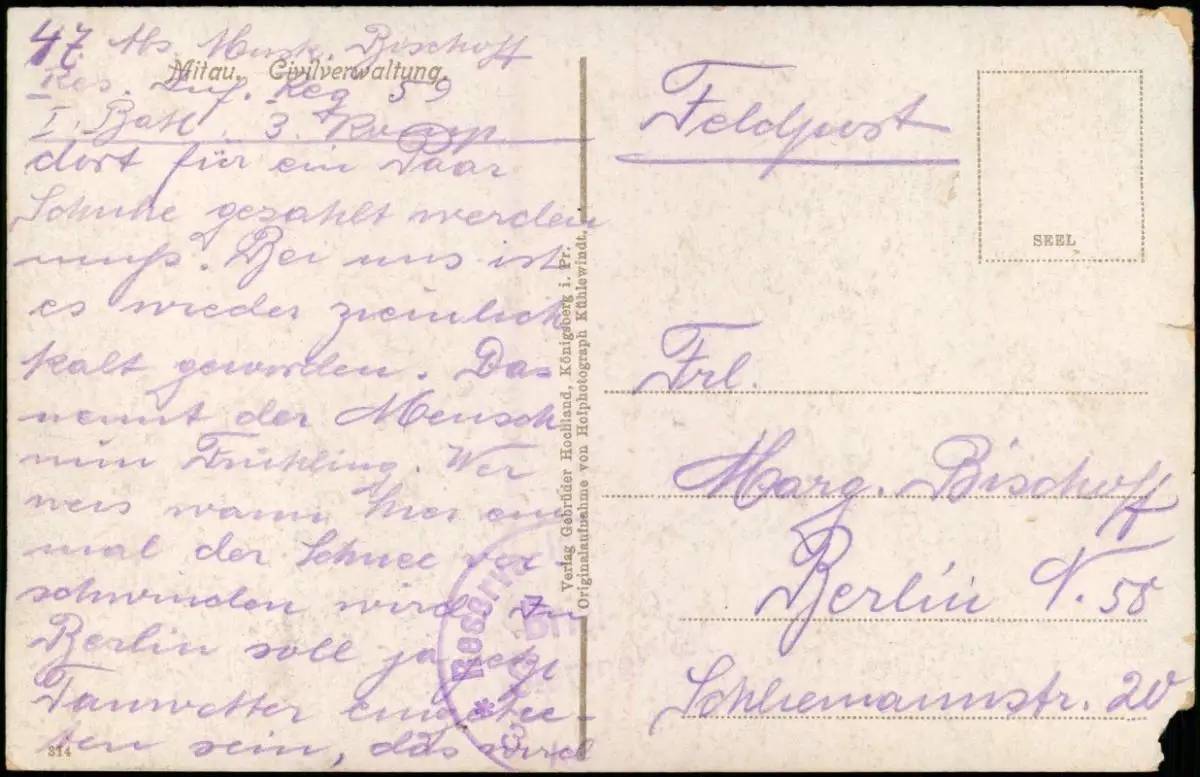 47. Abs. Musk. Bischoff
Mitau. Civilverwaltung.
Res. Inf. Reg 59
I. Batl. 3. Komp
dort für ein Paar
Schuhe gezahlt werden
muß? Bei uns ist
es wieder ziemlich
kalt geworden. Das
nennt der Mensch
nun Frühling. Wer
weis wann hier ein
mal der Schnee ver-
schwinden wird. In
Berlin soll ja jetzt
Tauwetter eingetre-
ten sein, das wird
314
Verlag Gebrüder Hochland, Königsberg i. Pr.
Originalaufnahme von Hofphotograph Kühlewindt.
* Reserve
Feldpost
SEEL
Frl.
Marg. Bischoff
Berlin N. 58
Schliemannstr. 20